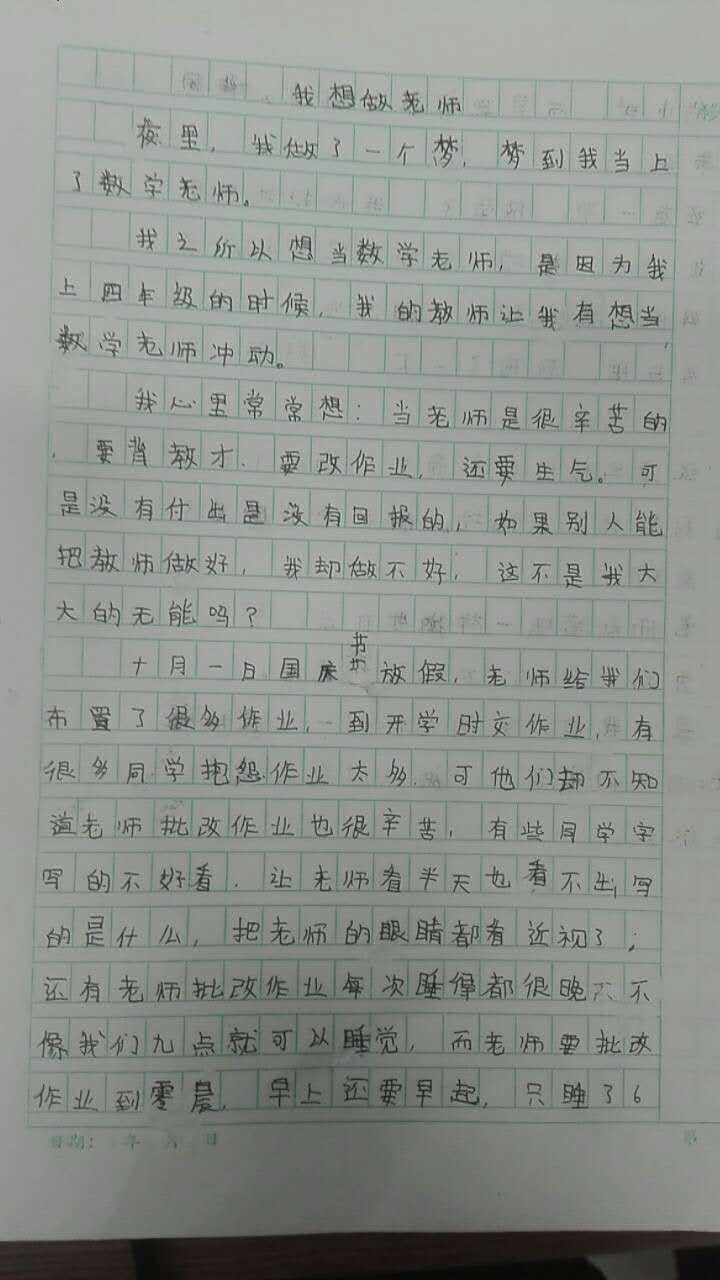 我想做老师
夜里，我做了一个梦，梦到我当上
了数学老师。
我之所以想当数学老师，是因为我
上四年级的时候，我的教师让我有想当
数学老师冲动。
我心里常常想：当老师是很辛苦的
，要背教才、要改作业，还要生气。可
是没有付出是没有回报的，如果别人能
把教师做好，我却做不好，这不是我大
大的无能吗？
十月一日国庆节放假，老师给我们
布置了很多作业，一到开学时交作业，有
很多同学抱怨作业太多，可他们却不知
道老师批改作业也很辛苦，有些同学字
写的不好看，让老师看半天也看不出写
的是什么，把老师的眼睛都看近视了；
还有老师批改作业每次睡得都很晚，不
像我们九点就可以睡觉，而老师要批改
作业到零晨，早上还要早起，只睡了6
日期： 年 月 日
第